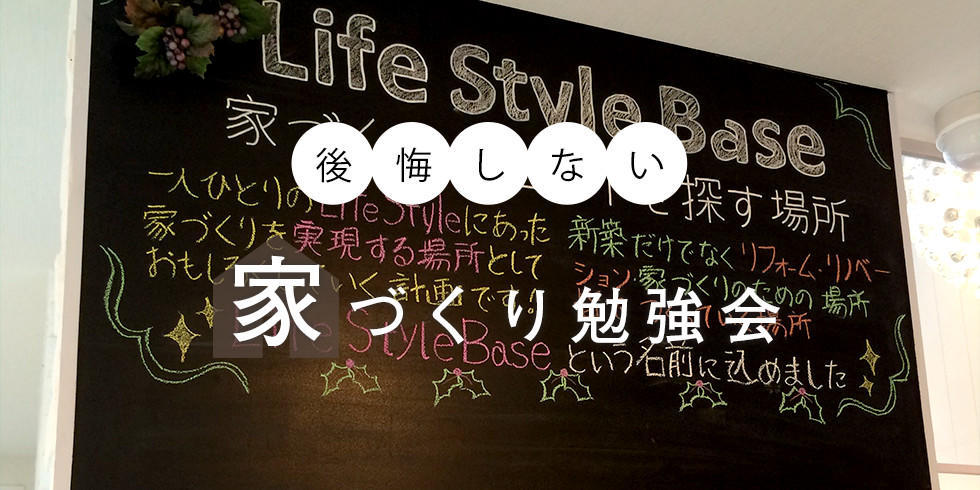 Life Style Base
家づく
後悔しない
を探す場所
一人ひとりのLifeStyleにあった
家づくりを実現する場所として
おもし
いく計画です。
新築だけでなくリフォーム・リノベー
ション・家づくりのための場所
場所
家づくり勉強会
StyleBaseという名前に込めました